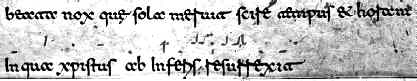 beata nox que sola meruit scire tempus & horam
In qua xpistus ab Inferis resurrexit